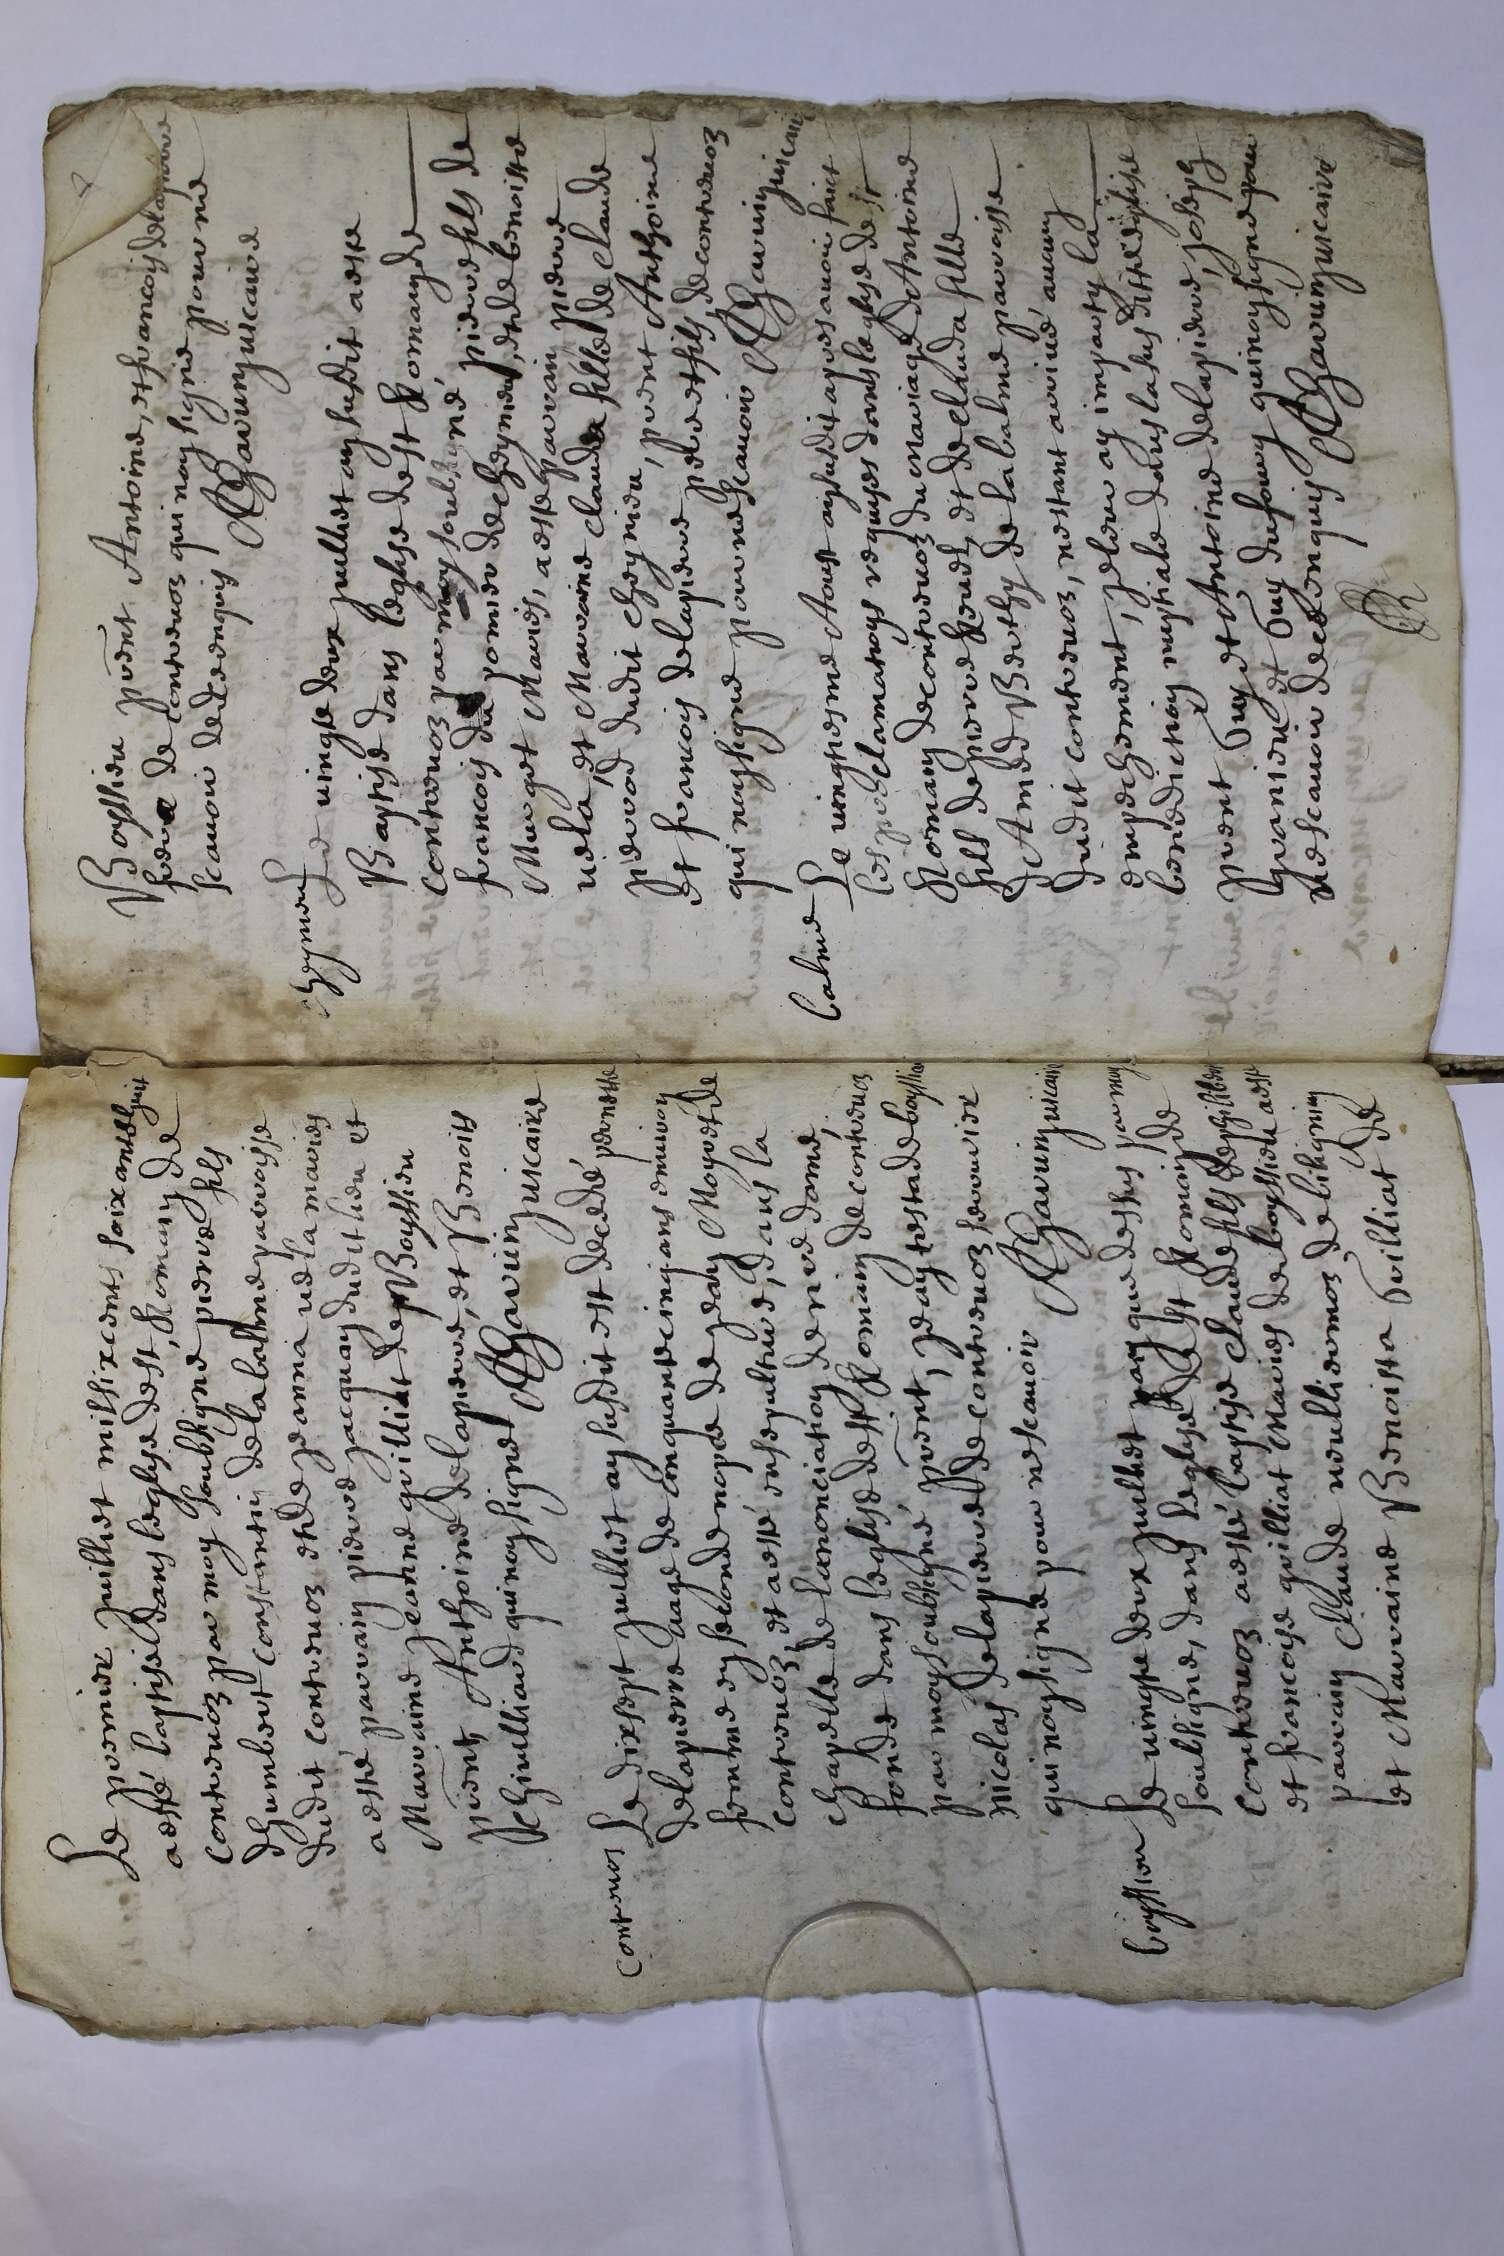 Le premier juillet mil six cents soixante huit
a esté baptisé dans leglise de st Romain de
Contrevoz par moy soubsigné pierre fils
dhumbert Constantin de labalme parroisse
dudit contrevoz et de Jeanna vela mariés
a esté parrain pierre Jacquay dudit lieu et
Marraine Jeanne guilliat de Boyssieu
pnt Anthoine delapierre, et Benoist
guilliard qui nont signé ABavuzjvicaire
contrevos
Le dixsept juillet an susdit est decedé pernette
delapierre aagé de cinquante cinq ans environ
femme en seconde nopce de Jean Moyret de
Contrevoz, et a esté ensepulturé, dans la
chapelle de lanonciation de nre dame,
fondé dans leglise de st Romain de contrevoz
par moy soubsigné pnt, Jean testa de boyssieu
Nicolas delapierre de contrevoz serrurier
qui nont signé pour ne scavoir ABavuzjvicaire
boyssieu
Le vingte deux juillet an que dessus par moy
soubsigné, dans leglise de st Romain de
Contrevoz a esté baptisé Claude fils de philibert
et francoise guilliat Mariés de boyssieu a esté
parrain Claude vuilliermoz de
et Marraine Benoista Guilliat de
Boyssieu pnt Antoine, et francois delapierre
de contrevoz qui nont signé pour ne
scavoir de ce enquis ABavuzjvicaire
Cheynieu
Le vingte deux juillet an susdit a esté
Baptisé dans leglise de st Romain de
contrevoz par moy soubsigné, pierre fils de
francois du pomier de Cheynieu, et de benoiste
Murget Mariés, a esté parrain pierre
vela, et Marraine Clauda fille de Claude
pierrod dudit Cheynieu, pnt Anthoine
et francois delapierre pere et fils de contrevoz
qui nont signé pour ne scavoir ABavuzjvicaire
balme
Le vingtiesme Aoust an susdit apres avoir faict
les proclamations requises dans leglise de st
Romain de contrevoz du mariage d'Antoine
fils de pierre et de Clauda fille
d'Amed Berthy de labalme parroisse
dudit contrevoz, nestant arrivé aucun
empechement, je leur ay imparty la
benediction nuptiale dans la susditte eglise
pnt Guy et Antoine delapierre, Joseph
et Guy dufour qui nont signé pour
ne scavoir de ce enquis ABavuzjvicaire